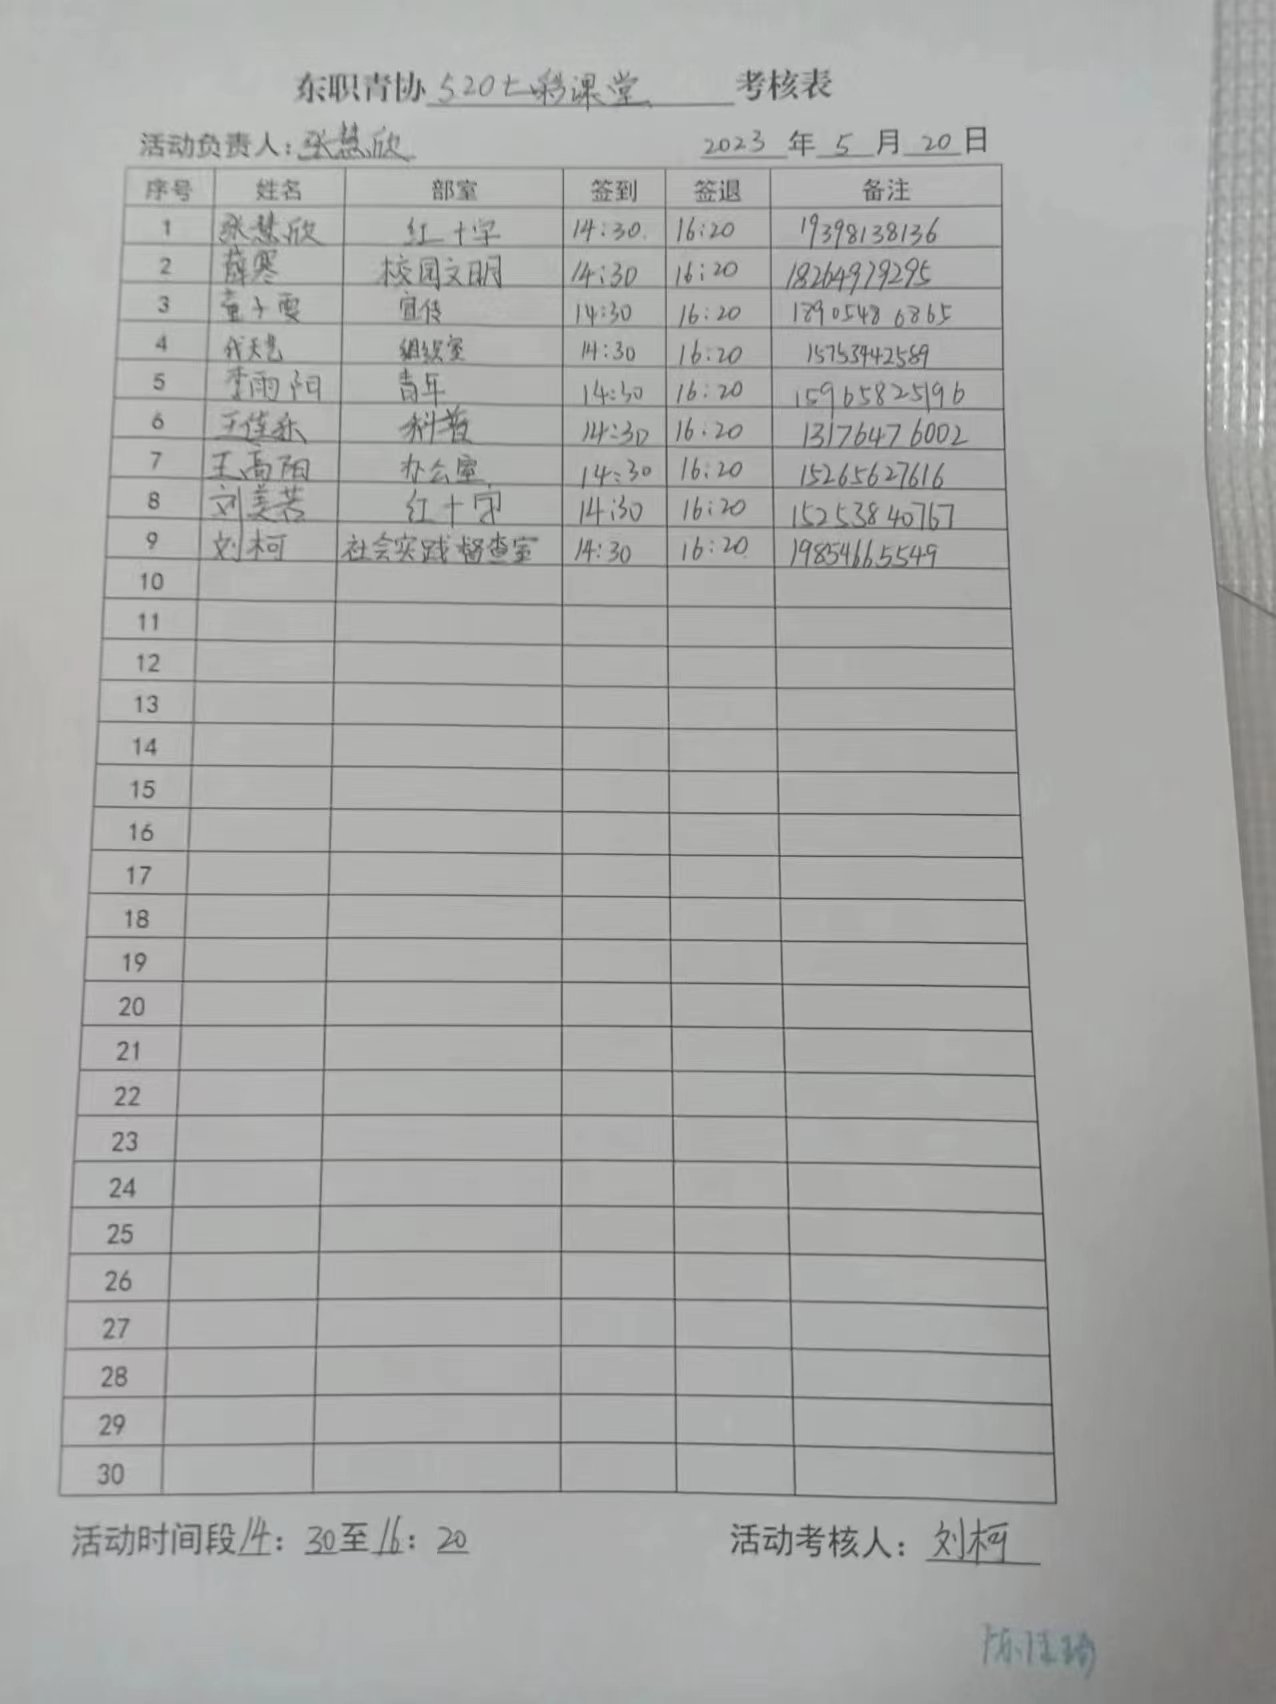 东职青协 520七彩课堂 考核表
活动负责人：张慧欣 2023 年 5 月 20 日
序号 姓名 部室 签到 签退 备注
1 张慧欣 红十字 14:30 16:20 19398138136
2 薛寒 校园文明 14:30 16:20 18264979295
3 童子雯 宣传 14:30 16:20 18905486865
4 代天艺 组织室 14:30 16:20 15753942589
5 李雨阳 青年 14:30 16:20 15965825196
6 王佳乐 科普 14:30 16:20 13176476002
7 王高阳 办公室 14:30 16:20 15265627616
8 刘美芸 红十字 14:30 16:20 15253840767
9 刘柯 社会实践督查室 14:30 16:20 19854665549
10
11
12
13
14
15
16
17
18
19
20
21
22
23
24
25
26
27
28
29
30
活动时间段 14：30至16：20 活动考核人：刘柯